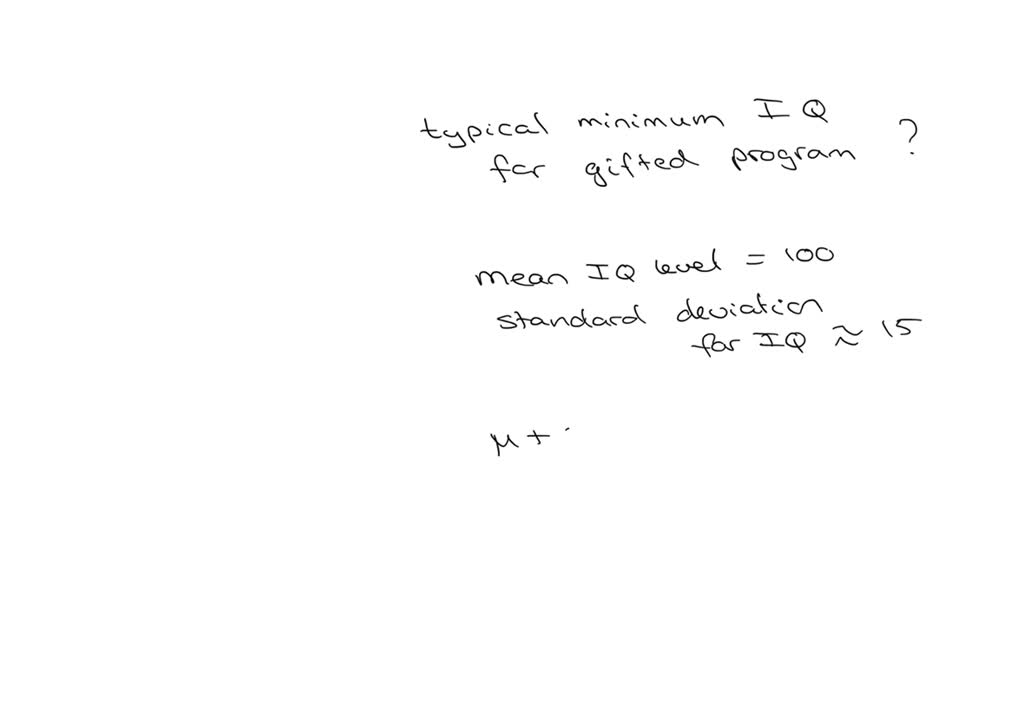 typical minimum IQ
for gifted program ?
mean IQ level = 100
standard deviation
for IQ ≈ 15
μ +